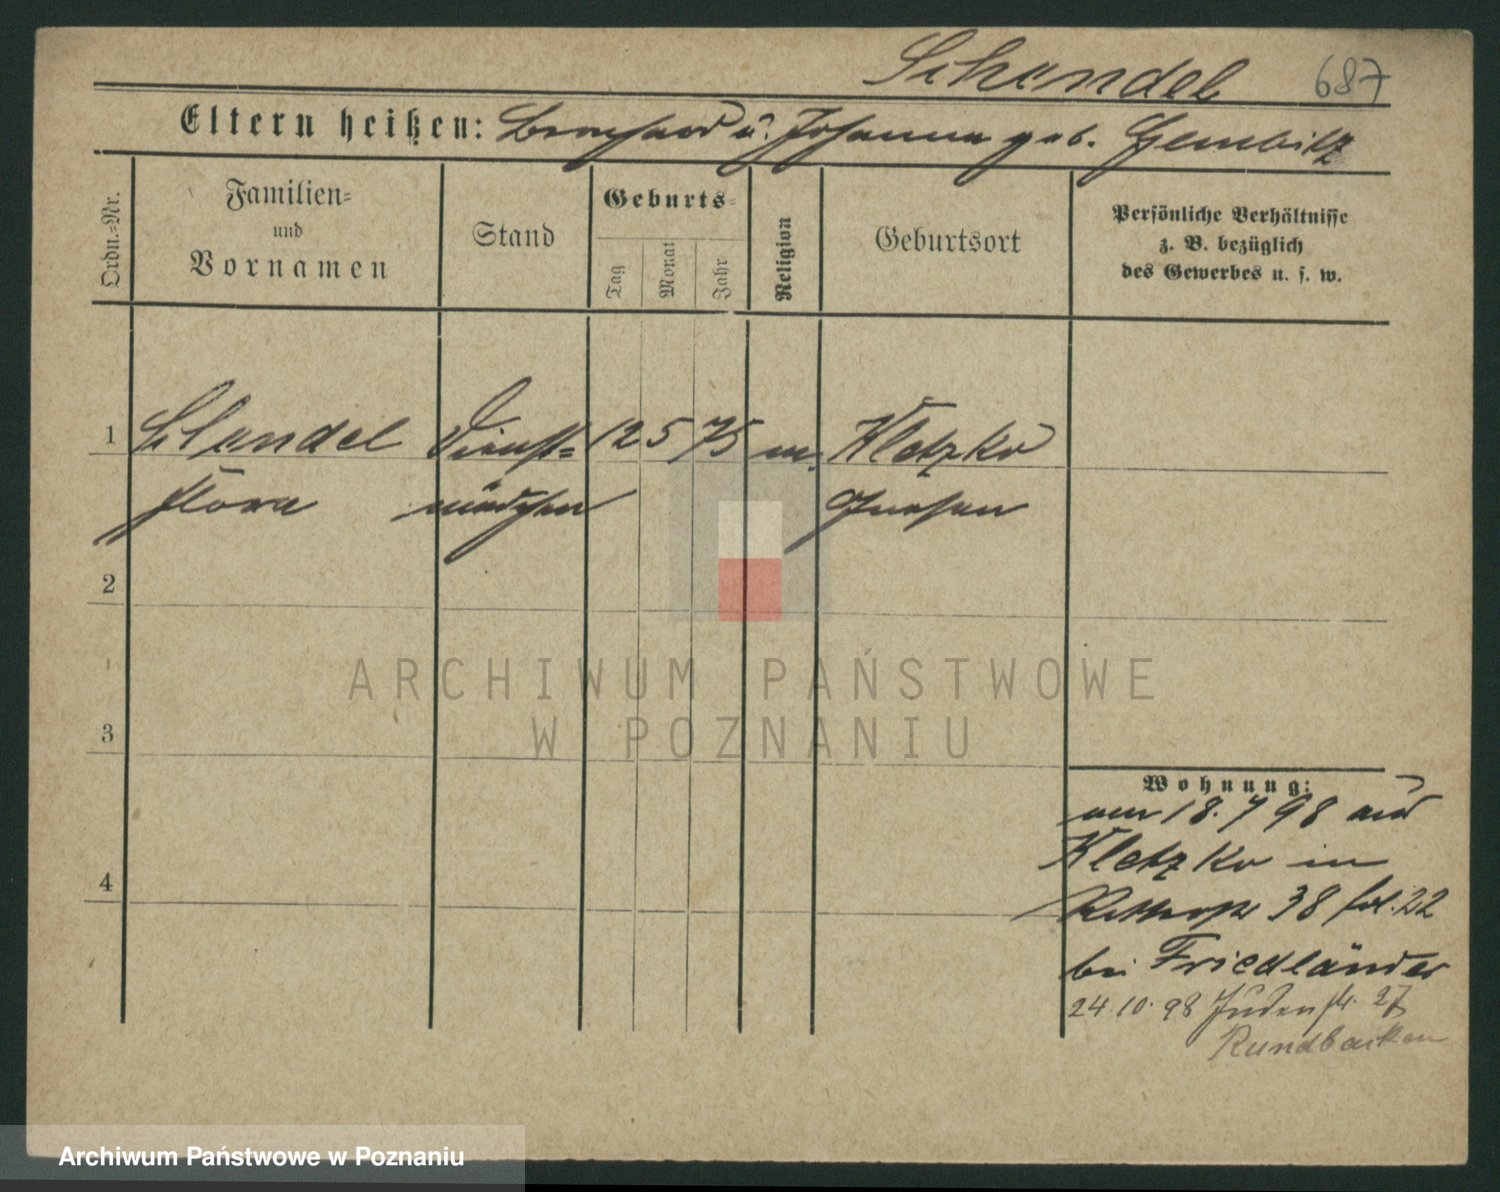 Schendel 687
Eltern heißen: Bernhard u. Johanna geb. Gembitz
Ordn.=Nr.
Familien=
und
Vornamen
Stand
Geburts=
Tag
Monat
Jahr
Religion
Geburtsort
Persönliche Verhältnisse
z. B. bezüglich
des Gewerbes u. s. w.
1 Schendel Dienst= 12 5 75 m. Kletzko
Flora mädchen Gnesen
2
3
4
Wohnung:
am 18.7 98 aus
Kletzko in
38 fol. 22
bei Friedländer
24.10.98 Judenstr. 27
ARCHIWUM PAŃSTWOWE
W POZNANIU
Archiwum Państwowe w Poznaniu